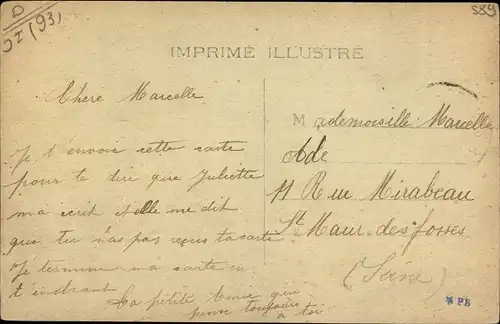 D
OI (93)
589
IMPRIMÉ ILLUSTRÉ
Chère Marcelle
Je t'envoie cette carte
pour te dire que Juliette
ma ecrit et elle me dit
que tu n'as pas reçus ta carte
Je termine ma carte en
t'embrassant
Ta petite Amie qui
pense toujours
a toi
Mademoiselle Marcelle
Ade
11 Rue Mirabeau
St Maur-des-fosses
(Seine)
PB